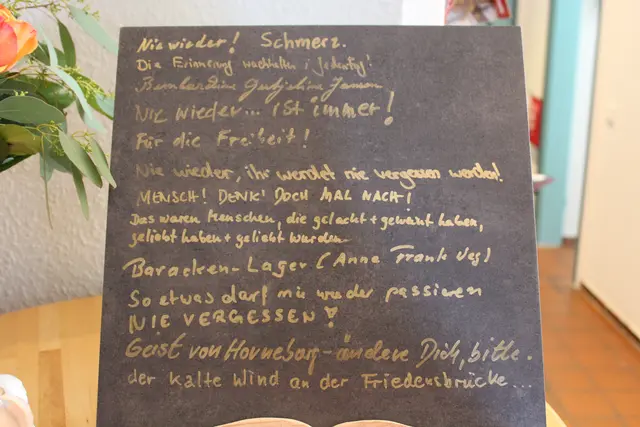 Nie wieder! Schmerz.
Die Erinnerung wachhalten, jeden Tag!
Nie wieder... ist immer!
Für die Freiheit!
Nie wieder, ihr werdet nie vergessen werden!
MENSCH! DENK' DOCH MAL NACH!
Das waren Menschen, die gelacht + geweint haben,
geliebt haben + geliebt wurden.
Baracken-Lager (Anne Frank Weg)
So etwas darf nie wieder passieren
NIE VERGESSEN!
Geist von Horneburg - ändere Dich, bitte.
der kalte Wind an der Friedensbrücke...